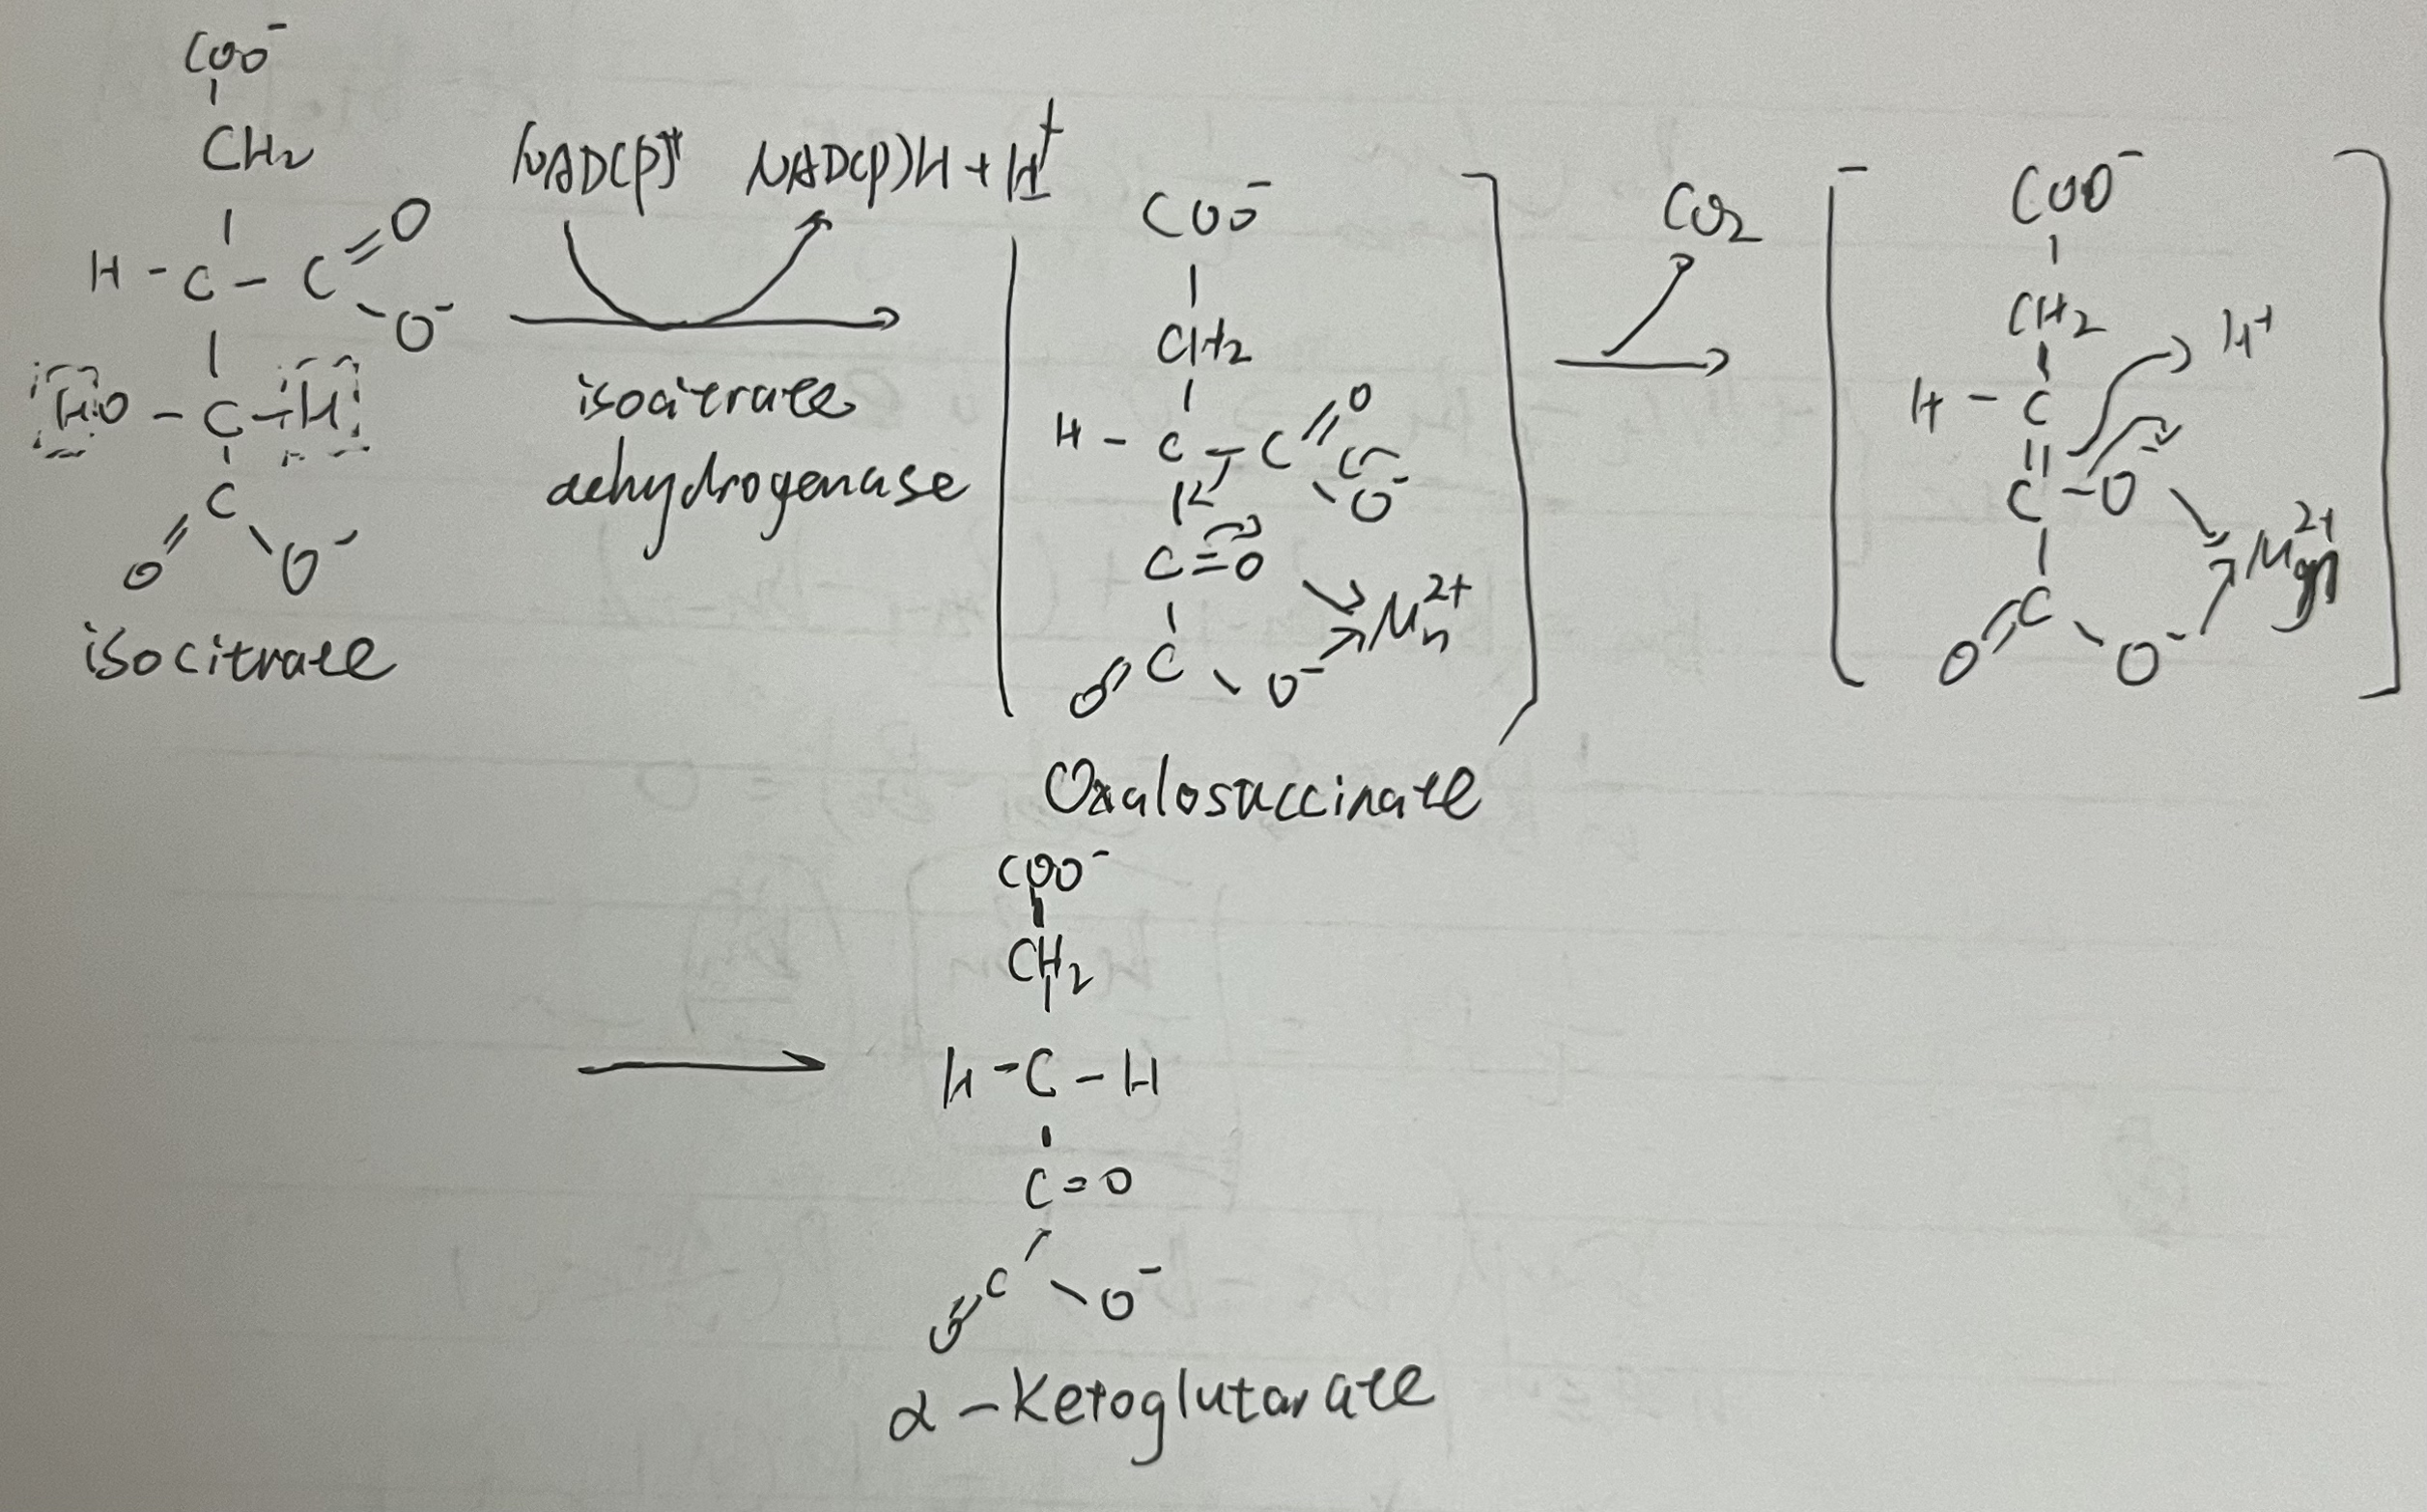 COO⁻
CH₂
H - C - C = O
O⁻
HO - C - H
C
O O⁻
isocitrate
NAD(P)⁺ NAD(P)H + H⁺
isocitrate
dehydrogenase
COO⁻
CH₂
H - C - C = O
O⁻
C = O
Mn²⁺
C
O O⁻
Oxalosuccinate
CO₂
COO⁻
CH₂
H⁺
H - C
C - O⁻
C
O O⁻
COO⁻
CH₂
H - C - H
C = O
C
O O⁻
α-Ketoglutarate